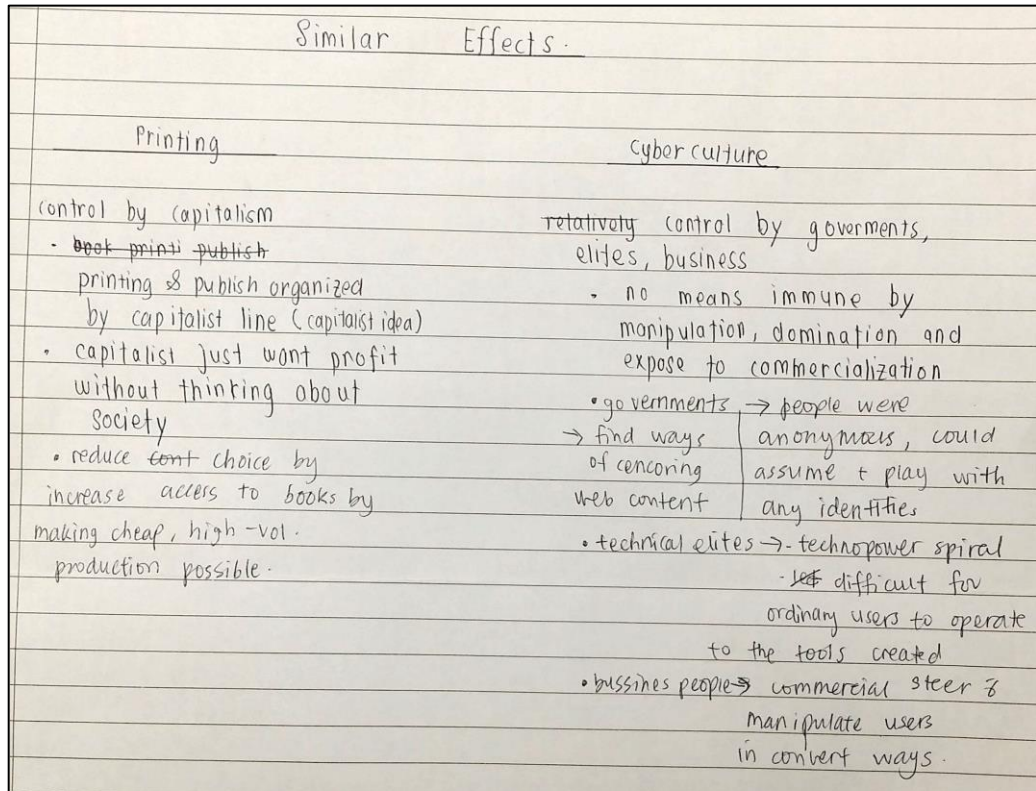 Similar Effects.
Printing
control by capitalism
• book printi publish
printing & publish organized
by capitalist line (capitalist idea)
• capitalist just want profit
without thinking about
society
• reduce cont choice by
increase access to books by
making cheap, high-vol.
production possible.
cyber culture
relatively control by goverments,
elites, business
• no means immune by
manipulation, domination and
expose to commercialization
• governments → people were
→ find ways anonymous, could
of cencoring assume + play with
web content any identities
• technical elites → - technopower spiral
- difficult for
ordinary users to operate
to the tools created
• bussines people → commercial steer &
manipulate users
in convert ways.